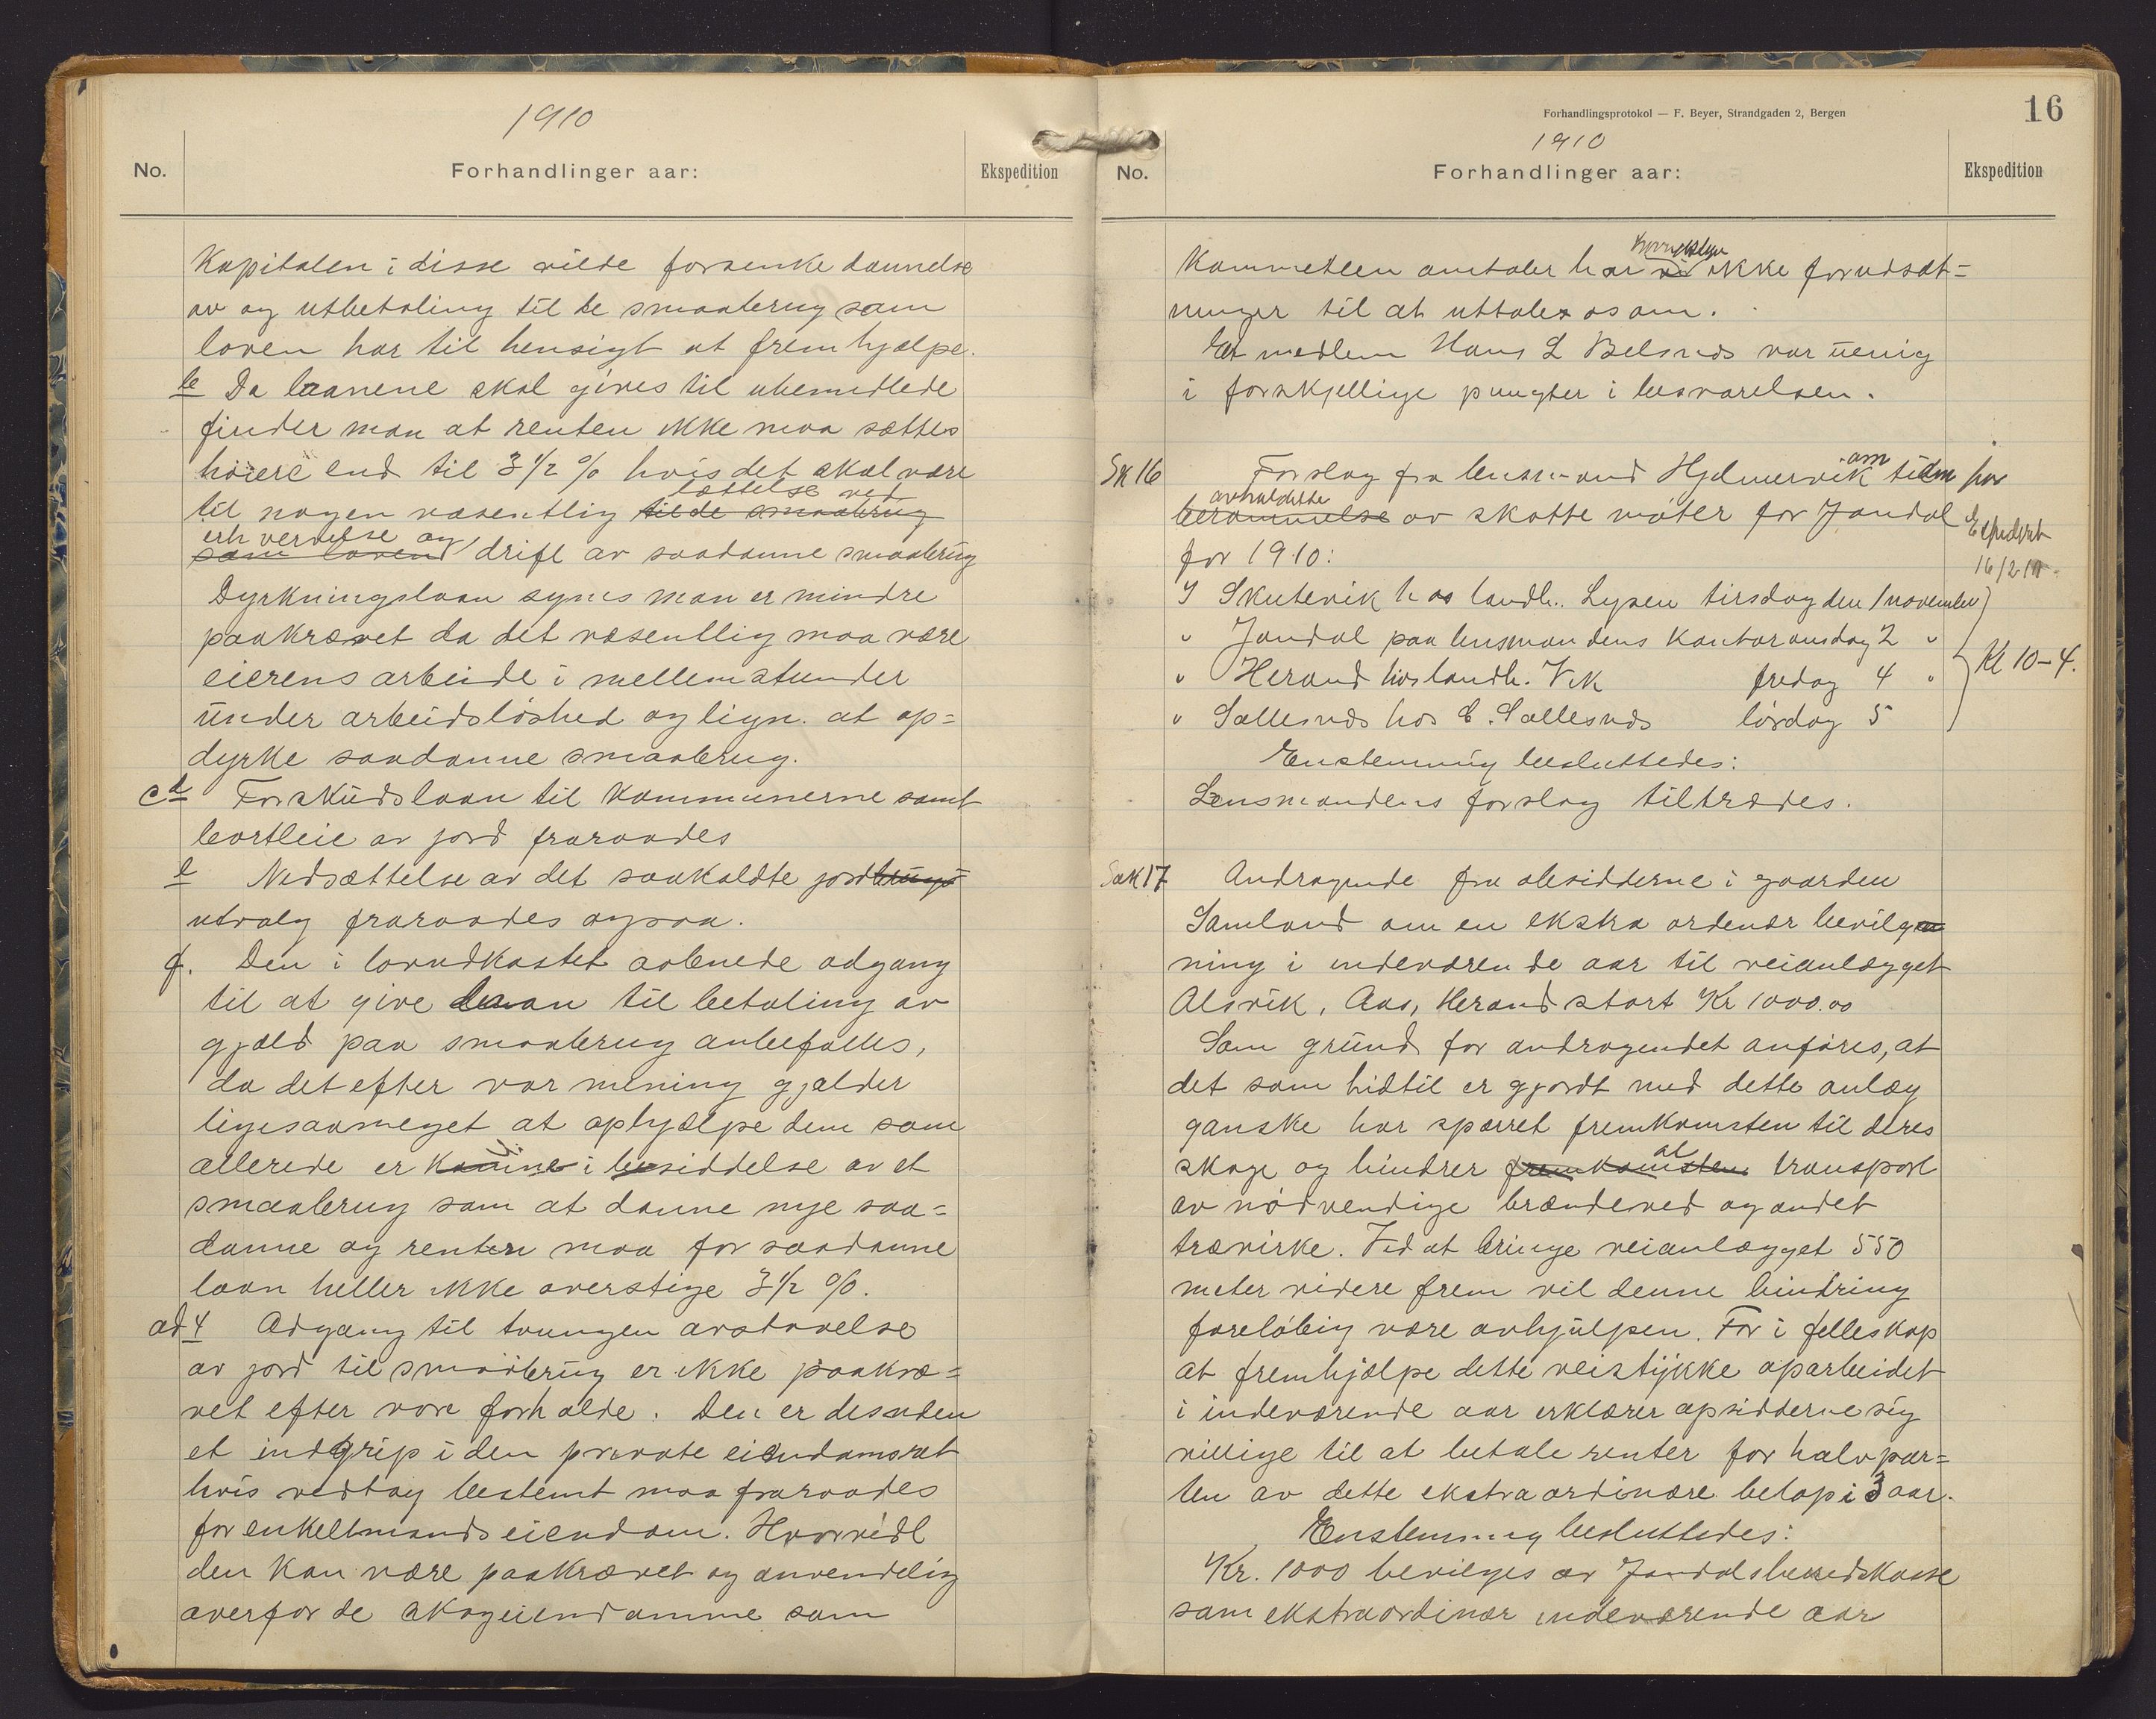 1910
No. Forhandlinger aar: Ekspedition
Kapitalen i disse vilde forsenke dannelse
av og utbetaling til de smaabrug som
loven har til hensigt at fremhjælpe.
b Da laanene skal gives til ubemidlede
finder man at renten ikke maa sættes
høiere end til 3 1/2 % hvis det skal være
lettelse ved
til nogen væsentlig til de smaabrug
erhvervelse og
som loven drift av saadanne smaabrug
Dyrkningslaan synes man er mindre
paakrævet da det væsentlig maa være
eierens arbeide i mellemstunder
under arbeidsløshed og lign. at op=
dyrke saadanne smaabrug.
c d Forskudslaan til Kommunerne samt
bortleie av jord fraraades
e Nedsættelse av det saakaldte jordbrugs
utvalg fraraades ogsaa.
f. Den i lovudkastet aabnede adgang
til at give laan til betaling av
gjæld paa smaabrug anbefalles,
da det efter vor mening gjælder
ligesaameget at ophjælpe dem som
allerede er komne i besiddelse av et
smaabrug som at danne nye saa=
danne og renten maa for saadanne
laan heller ikke overstige 3 1/2 %.
ad 4 Adgang til tvungen avstaaelse
av jord til smaabrug er ikke paakræ=
vet efter vore forholde. Den er desuden
et indgrip i den private eiendomsret
hvis vedtag bestemt maa fraraades
for enkeltmands eiendom. Hvorvidt
den kan være paakrævet og anvendelig
overfor de skogeiendomme som
Forhandlingsprotokol — F. Beyer, Strandgaden 2, Bergen
16
1910
No. Forhandlinger aar: Ekspedition
Kommetteen amtaler har vi ikke forudsæt=
ninger til at uttale os om.
Et medlem Hans L Belsnes var uenig
i forskjellige pungter i besvarelsen.
Sk 16 Forslag fra lensmand Hjelmervik om tiden for
avholdelse
berammelse av skatte møter for Jondal
Expedert
for 1910:
16/2 10.
I Skutevik hos landh. Lysen tirsdag den 1 november
" Jondal paa lensmandens kontor onsdag 2 "
Kl 10-4.
" Herand hos landh. Vik fredag 4 "
" Sollesnes hos E. Sollesnes lørdag 5
Enstemmig besluttedes:
Lensmandens forslag tiltrædes.
Sak 17 Andragende fra obsidderne i gaarden
Samland om en ekstra ordenær bevilg
ning i indeværende aar til veianlægget
Alsvik, Aas, Herand stort Kr 1000.00
Som grund for andragendet anføres, at
det som hidtil er gjordt med dette anlæg
ganske har sperret fremkomsten til deres
al
skoge og hindrer fremkomsten transport
av nødvendige brændeved og andet
trævirke. Ved at bringe veianlægget 550
meter videre frem vil denne hindring
foreløbig være avhjulpen. For i felleskap
at fremhjælpe dette veistykke oparbeidet
i indeværende aar erklærer opsidderne sig
villige til at betale renter for halvpar=
ten av dette ekstraordinære beløp i 3 aar.
Enstemmig besluttedes:
Kr. 1000 bevilges av Jondals heredskasse
som ekstraordinær indeværende aar